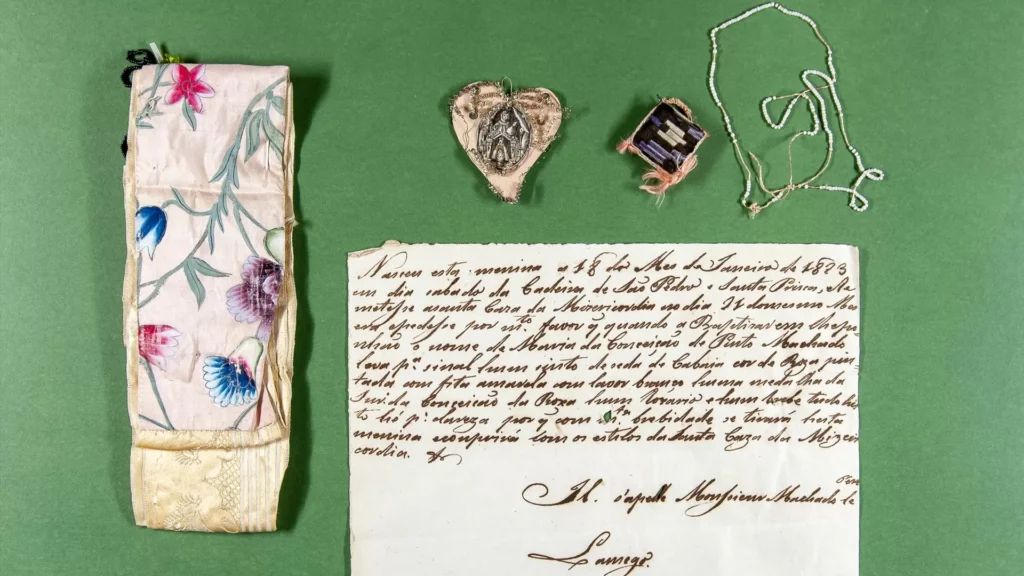 Nasceu esta menina a 18 do Mes de Janeiro de 1823
em dia sabado da Cadeira de São Pedro e Santa Prisca, Re
metese asanta Caza da Misericordia no dia 21 domesmo Mes
em epedese por m.to favor q quando a Baptizarem lhepo
nhão o nome de Maria da Conceição de Pinto Machado
leva p.a sinal hum cinto de seda de Cabaia cor de Roza pin
tada com fita amarela com lavor branco huma medalha da
Sn.ra da Conceição da Roxa hum rozario e hum
to he p.a clareza por q com m.ta brebidade se tirará hesta
menina ecomprirá com os estilos da Santa Caza da Mizeri
cordia.
Monsieur Machado de
Lamego.